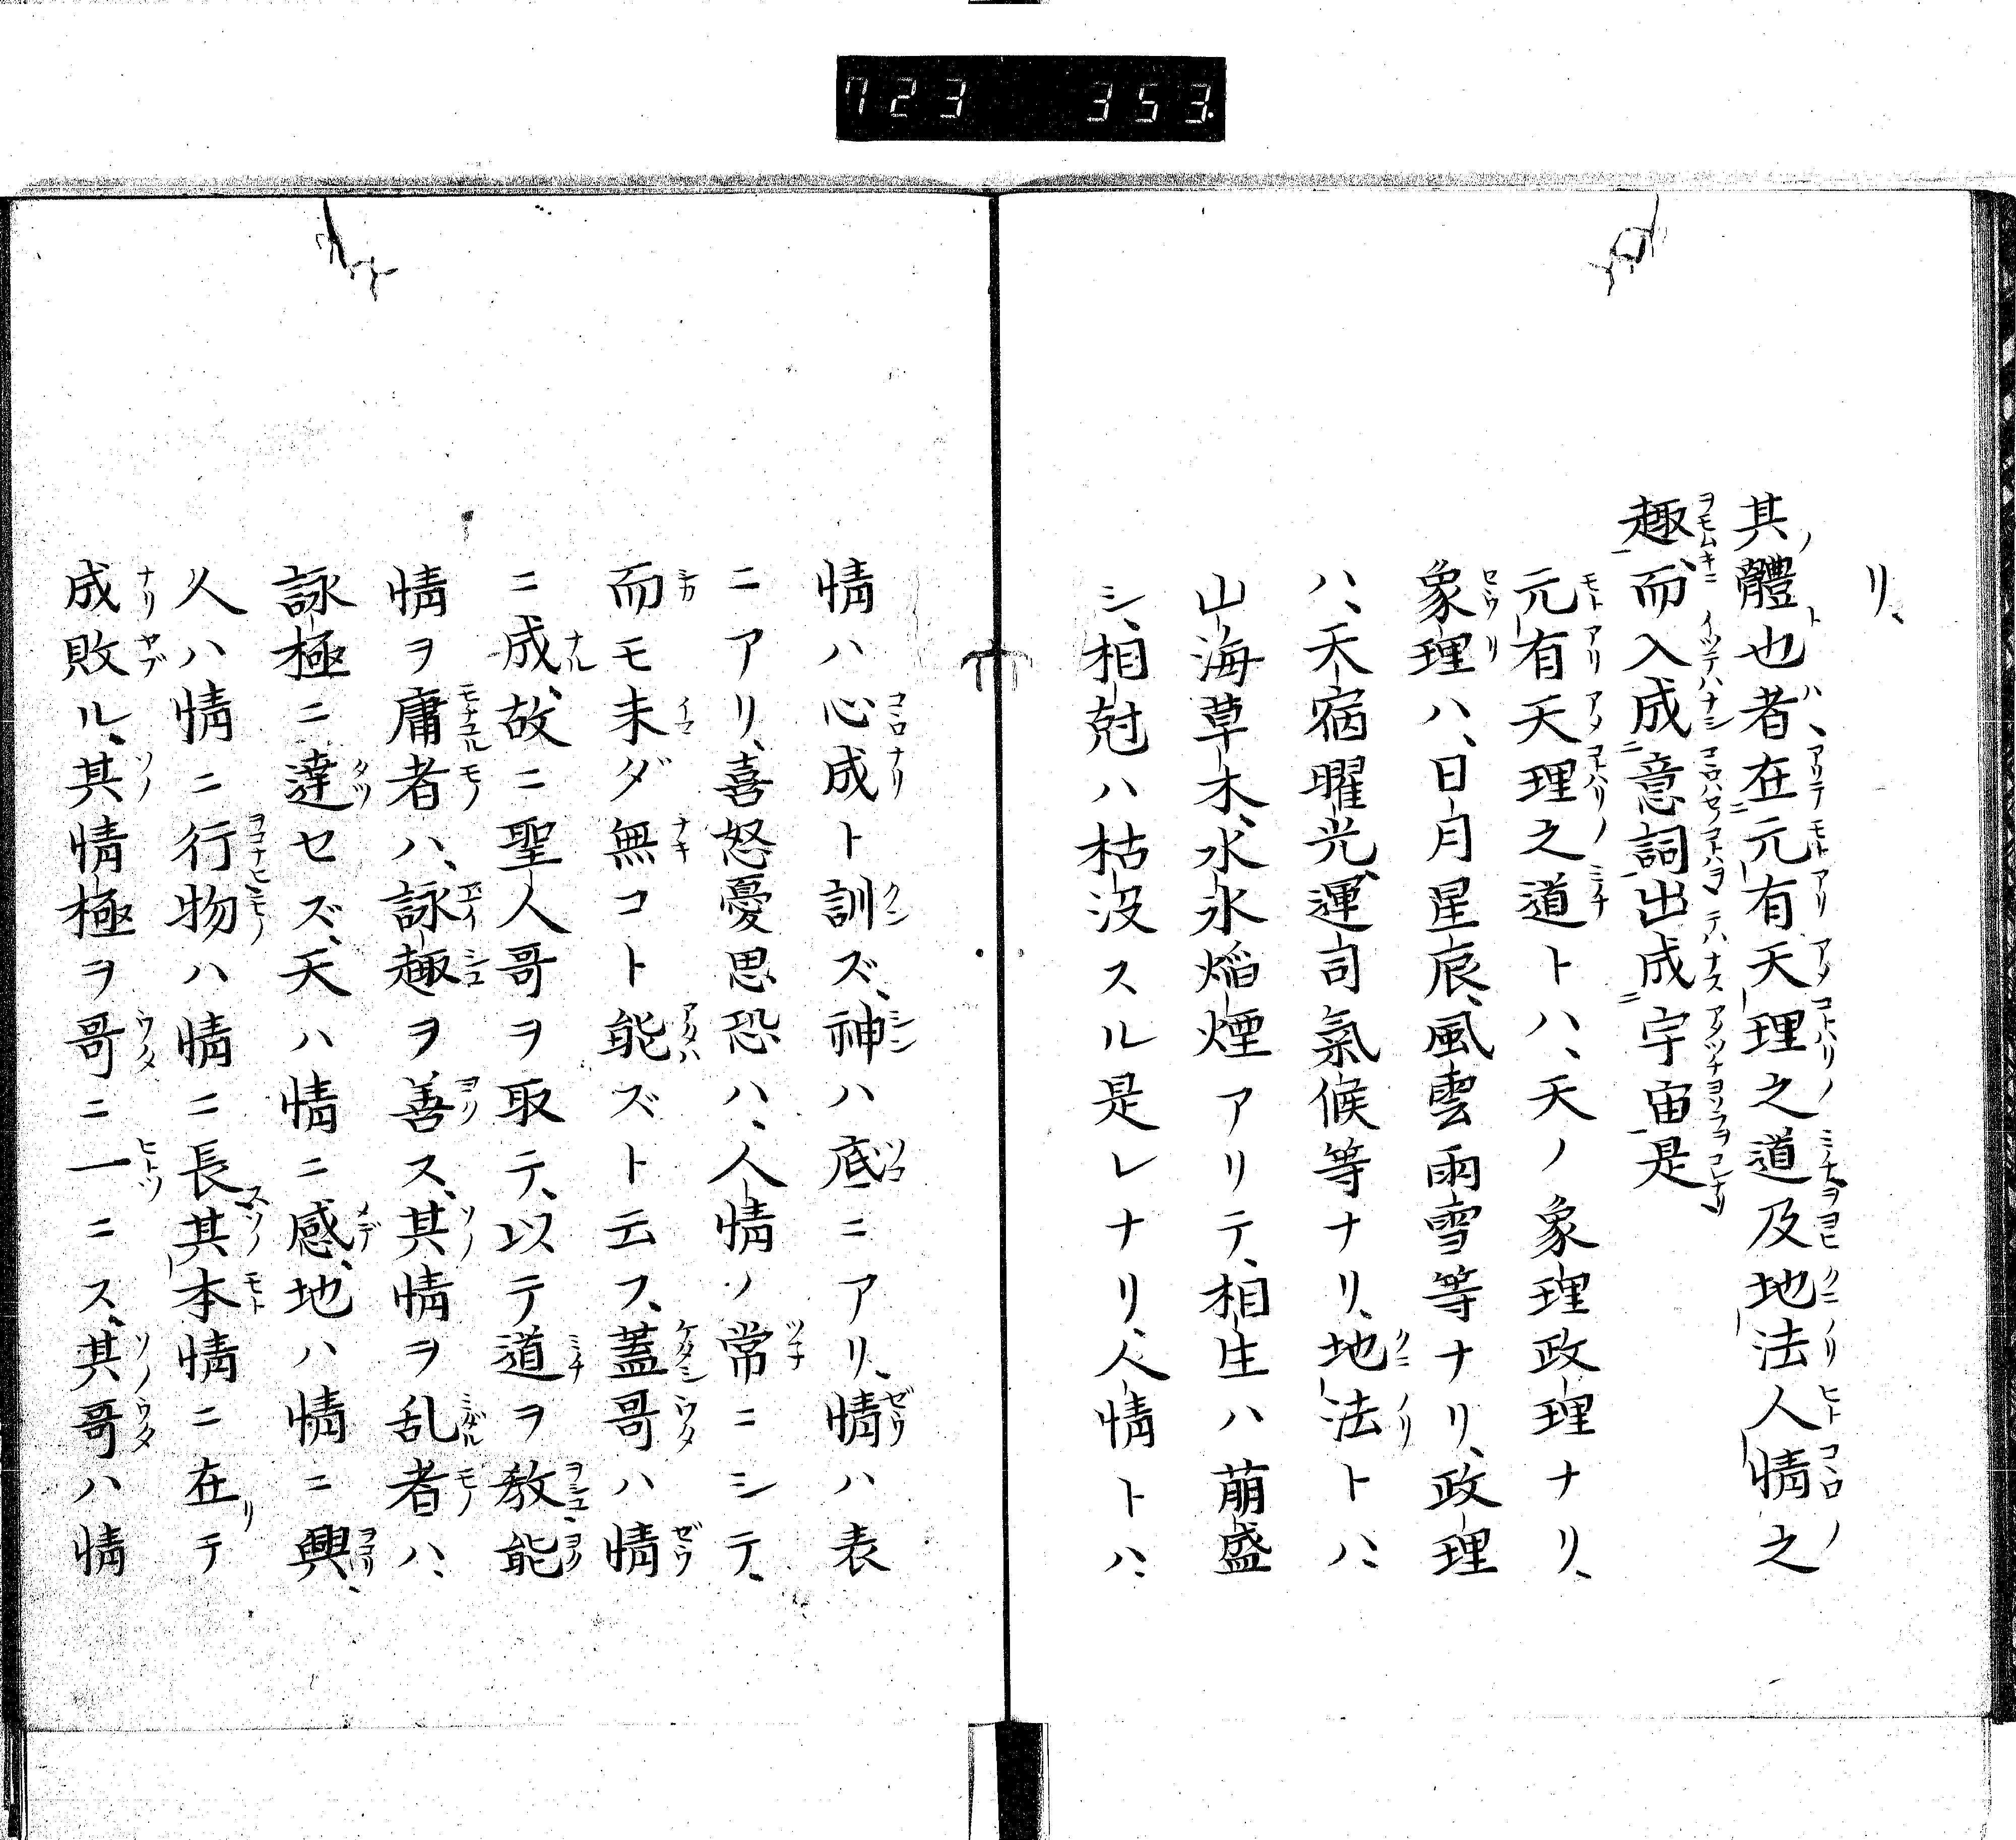 723 353
リ、
其體也者、在元有天理之道及地法人情之
趣、而入成意詞出成宇宙是
元有天理之道トハ、天ノ象理政理ナリ、
象理ハ、日月星辰、風雲雨雪等ナリ、政理
ハ、天宿曜光、運司氣候等ナリ、地法トハ
山海草木、水氷焔煙アリテ、相生ハ萠盛
シ、相尅ハ枯没スル是レナリ、人情トハ、
情ハ心成ト訓ズ、神ハ底ニアリ、情ハ表
ニアリ、喜怒憂思恐ハ、人情ノ常ニシテ、
而モ未ダ無コト能ズト云フ、蓋哥ハ情
ニ成、故ニ聖人哥ヲ取テ、以テ道ヲ教、能
情ヲ庸者ハ、詠趣ヲ善ス、其情ヲ乱者ハ、
詠極ニ達セズ、天ハ情ニ感、地ハ情ニ興、
人ハ情ニ行物ハ情ニ長其本情ニ在テ
成敗ル、其情極ヲ哥ニ一ニス、其哥ハ情